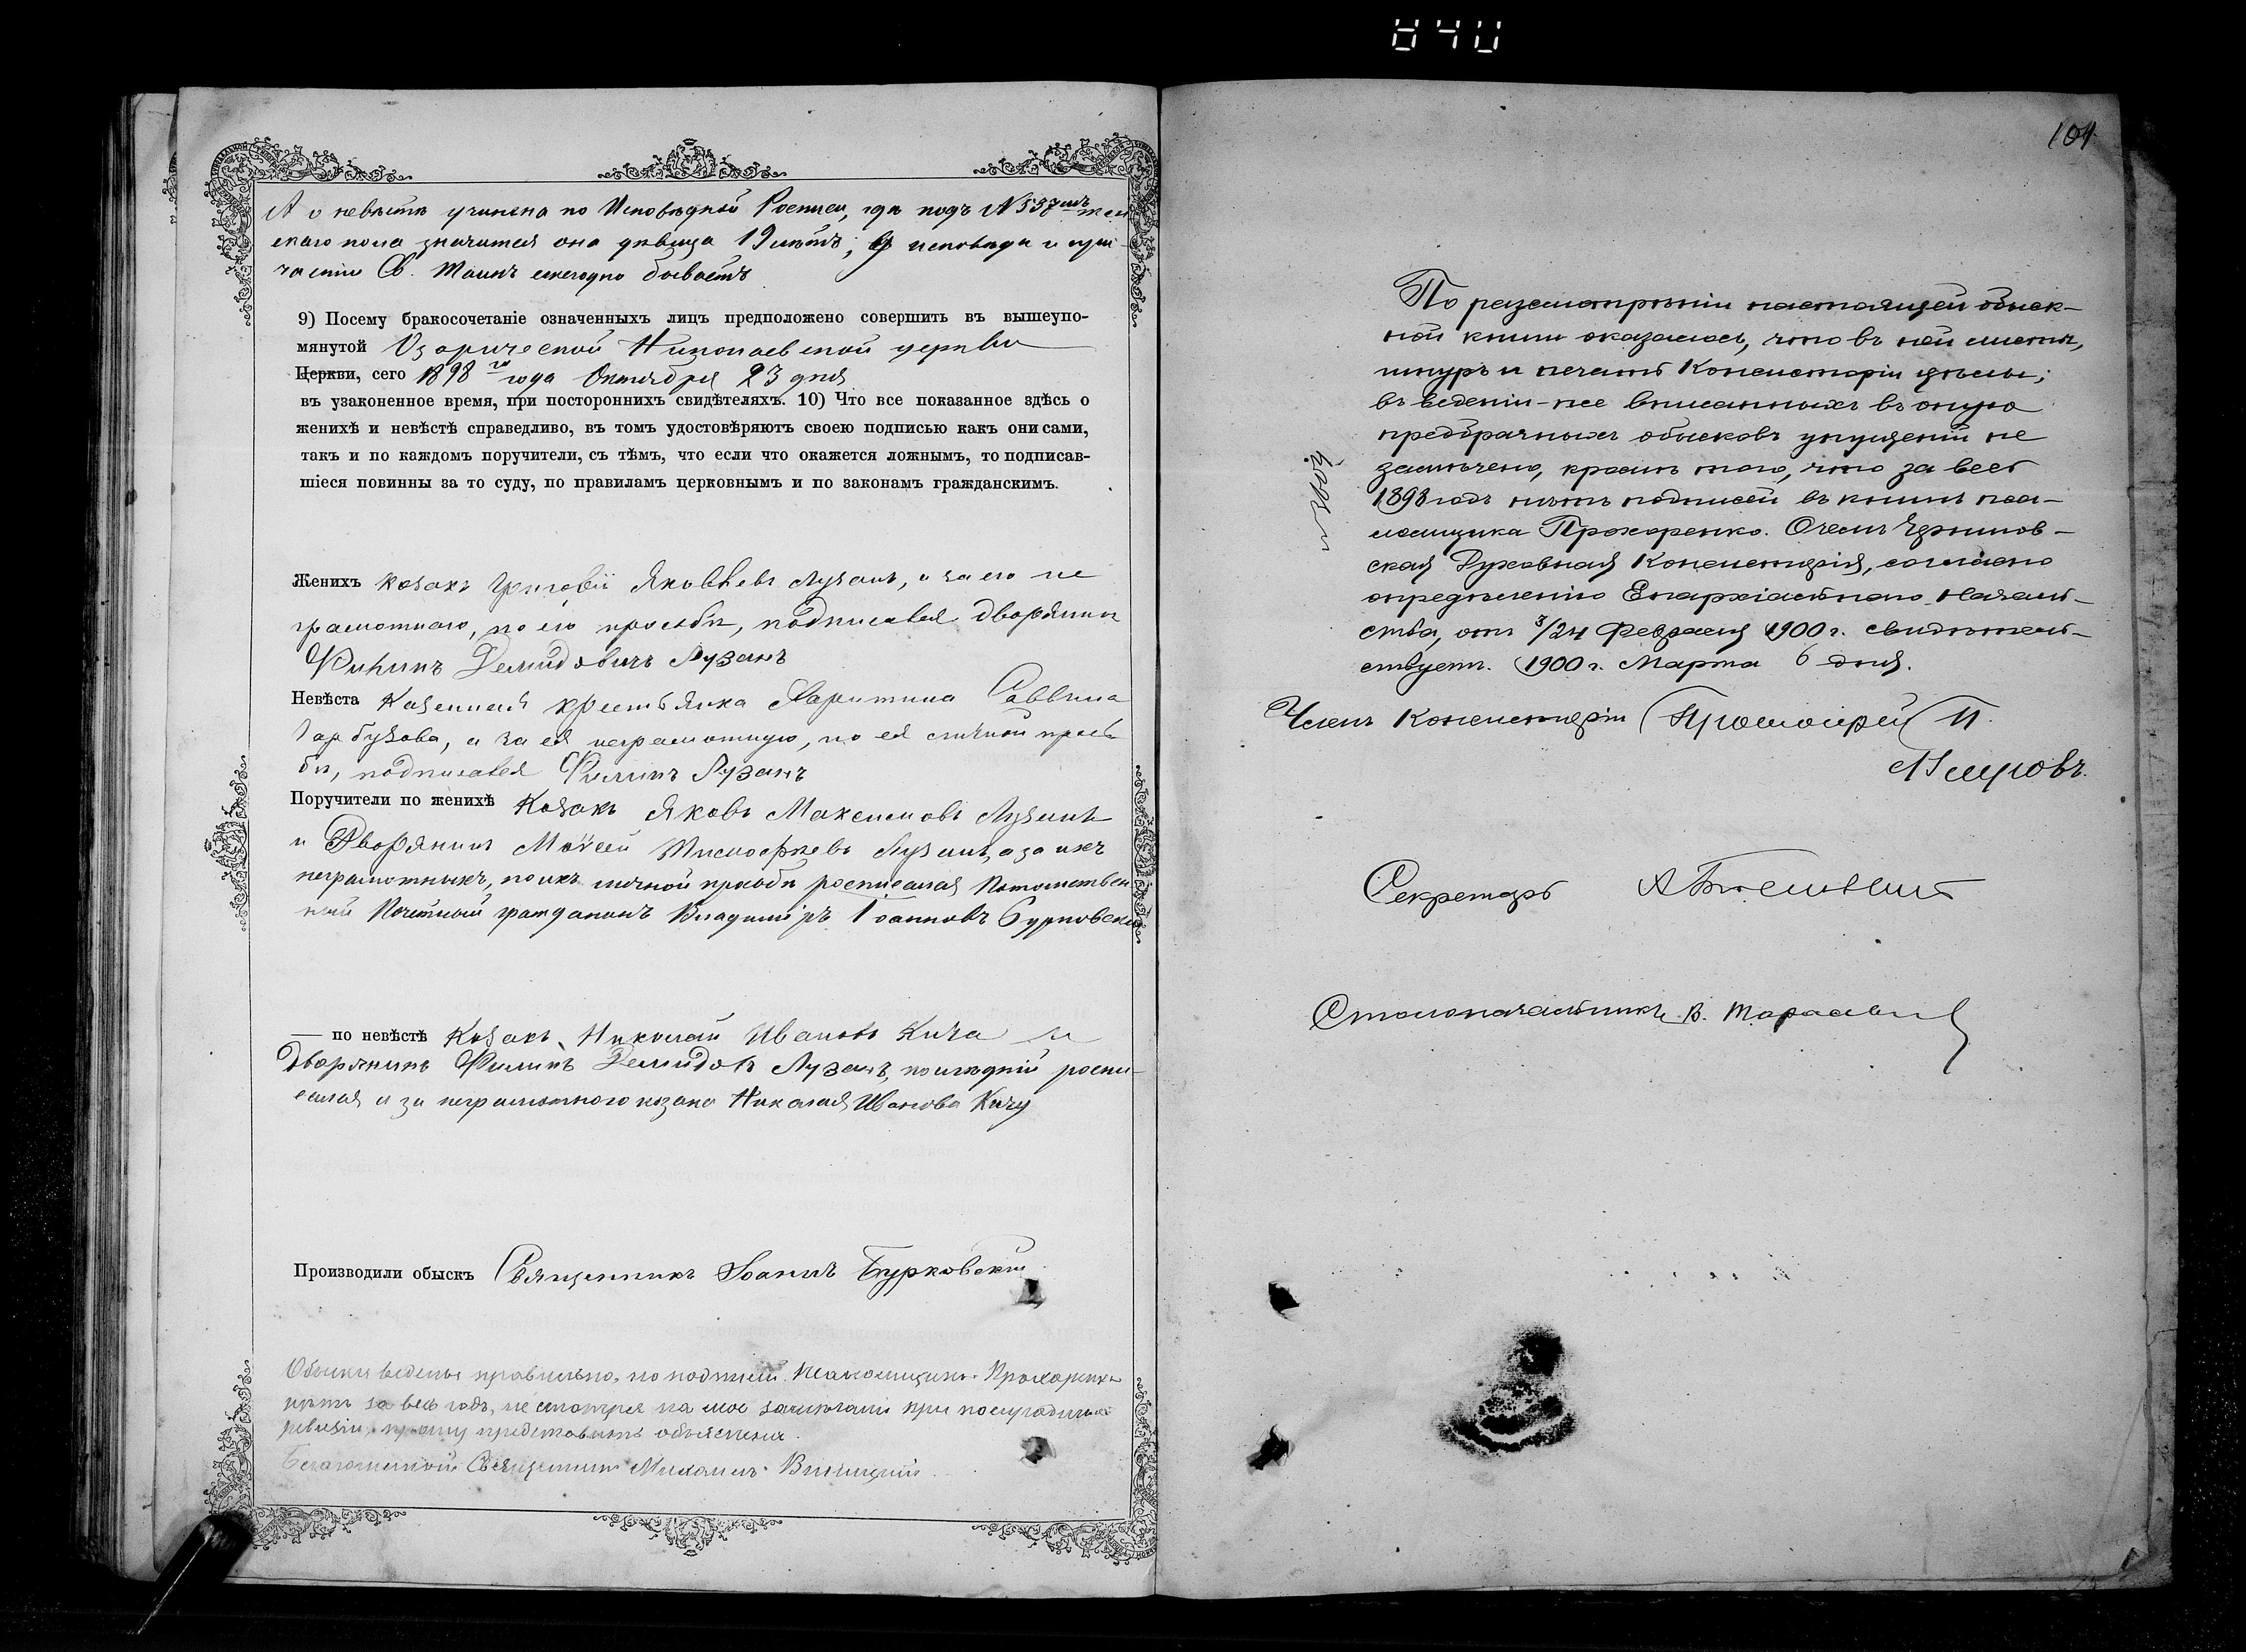 840
А о невѣстѣ учинена по Исповѣдной Росписи, гдѣ подъ № 537 мъ жен
скаго пола значится она дѣвица 19 лѣтъ; у исповѣди и при-
частія Св. Таинъ ежегодно бываетъ
9) Посему бракосочетаніе означенныхъ лицъ предположено совершить въ вышеупо-
мянутой Узорической Николаевской церкви
Церкви, сего 1898 го года Октября 23 дня
въ узаконенное время, при постороннихъ свидѣтеляхъ. 10) Что все показанное здѣсь о
женихѣ и невѣстѣ справедливо, въ томъ удостовѣряютъ своею подписью какъ они сами,
такъ и по каждомъ поручители, съ тѣмъ, что если что окажется ложнымъ, то подписав-
шіеся повинны за то суду, по правиламъ церковнымъ и по законамъ гражданскимъ.
Женихъ козакъ Григорій Яковлевъ Лузанъ, а за его не
грамотнаго, по его просьбѣ, подписался дворянинъ
Филипъ Демидовичъ Лузанъ
Невѣста Казенная крестьянка Харитина Саввина
Гарбузова, а за ея неграмотную, по ея личной прось
бѣ, подписался Филипъ Лузанъ
Поручители по женихѣ Козакъ Яковъ Максимовъ Лузанъ
и Дворянинъ Моѵсей Тимофѣевъ Лузанъ, а за ихъ
неграмотныхъ, по ихъ личной просьбѣ росписался Потомствен
ный Почетный гражданинъ Владиміръ Іоанновъ Бурковскій
— по невѣстѣ Козакъ Николай Ивановъ Кича и
Дворянинъ Филипъ Демидовъ Лузанъ, послѣдній роспи-
сался и за неграмотного козака Николая Иванова Кичу
Производили обыскъ Священникъ Іоаннъ Бурковскій
Обыски ведены правильно, но подписей Псаломщика Прохоренка
нѣтъ за весь годъ, не смотря на мое замѣчаніе при полугодичной
ревизіи, прошу представить объясненія.
Благочинный Священникъ Михаилъ Виницкій
104
По разсмотрѣніи настоящей обыск-
ной книги оказалось, что въ ней листы,
шнуръ и печать Консисторіи цѣлы;
въ веденіи-же вписанныхъ въ оную
предбрачныхъ обысковъ упущеній не
замѣчено, кромѣ того, что за весь
1898 годъ нѣтъ подписей въ книгѣ пса-
ломщика Прохоренко. О чемъ Чернигов-
ская Духовная Консисторія, согласно
опредѣленію Епархіальнаго Началь-
ства, отъ 3/24 Февраля 1900 г. свидѣтель-
ствуетъ. 1900 г. Марта 6 дня.
Членъ Консисторіи Протоіерей П.
Секретарь
Столоначальникъ В.